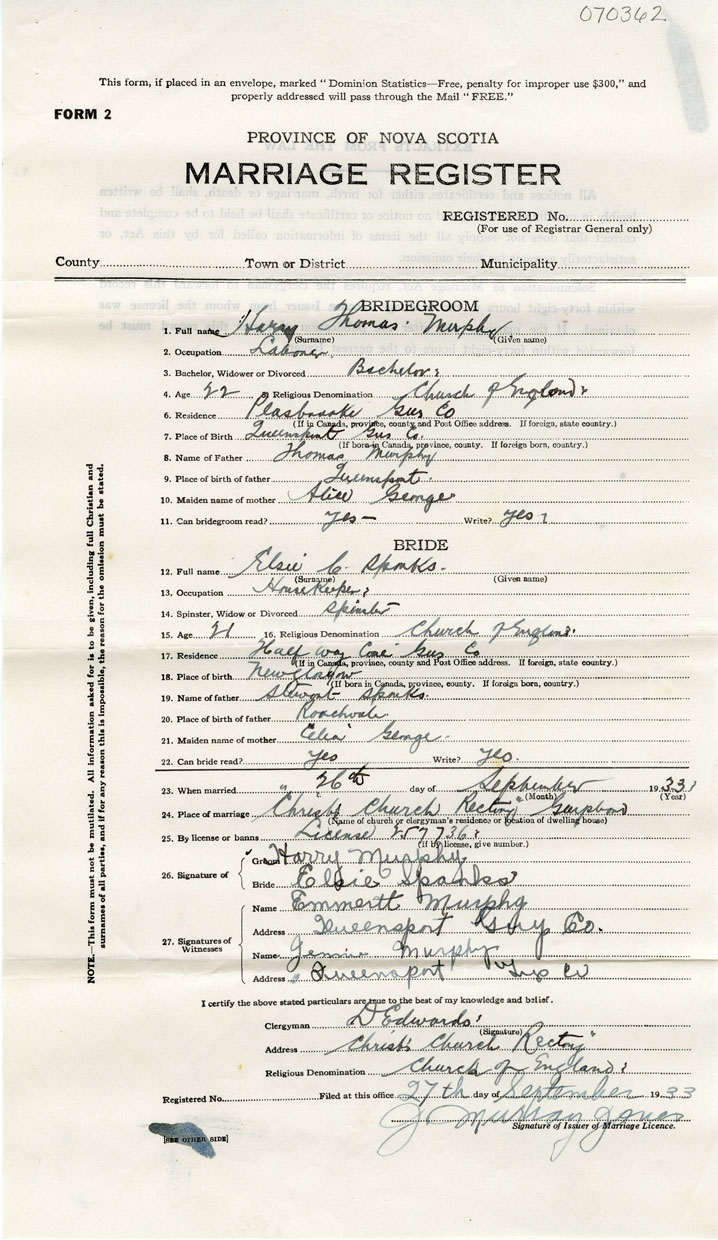 070362
This form, if placed in an envelope, marked "Dominion Statistics—Free, penalty for improper use $300," and
properly addressed will pass through the Mail "FREE."
FORM 2
PROVINCE OF NOVA SCOTIA
MARRIAGE REGISTER
REGISTERED No.
(For use of Registrar General only)
County Town or District Municipality
BRIDEGROOM
1. Full name Harry Thomas Murphy
(Surname) (Given name)
2. Occupation Laborer
3. Bachelor, Widower or Divorced Bachelor
4. Age 22 Religious Denomination Church of England
6. Residence Gus Co
(If in Canada, province, county and Post Office address. If foreign, state country.)
7. Place of Birth Queensport Gus Co.
(If born in Canada, province, county. If foreign born, country.)
8. Name of Father Thomas Murphy
9. Place of birth of father Queensport
10. Maiden name of mother Alice George
11. Can bridegroom read? yes— Write? yes
BRIDE
12. Full name Elsie C. Spanks.
(Surname) (Given name)
13. Occupation Housekeeper
14. Spinster, Widow or Divorced Spinster
15. Age 21 16. Religious Denomination Church of England
17. Residence Half way Cove Gus Co
(If in Canada, province, county and Post Office address. If foreign, state country.)
18. Place of birth New Glasgow
(If born in Canada, province, county. If foreign born, country.)
19. Name of father Stewart Spanks.
20. Place of birth of father Roachvale
21. Maiden name of mother Celia George.
22. Can bride read? yes Write? yes.
23. When married 26th day of September 1933
(Month) (Year)
24. Place of marriage Christ Church Rectory Guysboro
(Name of church or clergyman's residence or location of dwelling house)
25. By license or banns License 257736
(If by license, give number.)
26. Signature of
Groom Harry Murphy
Bride Elsie Spanks
27. Signatures of Witnesses
Name Emmertt Murphy
Address Queensport Guy Co.
Name Murphy
Address Queensport Co
I certify the above stated particulars are true to the best of my knowledge and belief.
Clergyman D Edwards
(Signature)
Address Christ Church Rectory
Religious Denomination Church of England
Registered No. Filed at this office 27th day of September 1933
J. Murray Jones
Signature of Issuer of Marriage Licence.
[SEE OTHER SIDE]
NOTE.—This form must not be mutilated. All information asked for is to be given, including full Christian and
surnames of all parties, and if for any reason this is impossible, the reason for the omission must be stated.